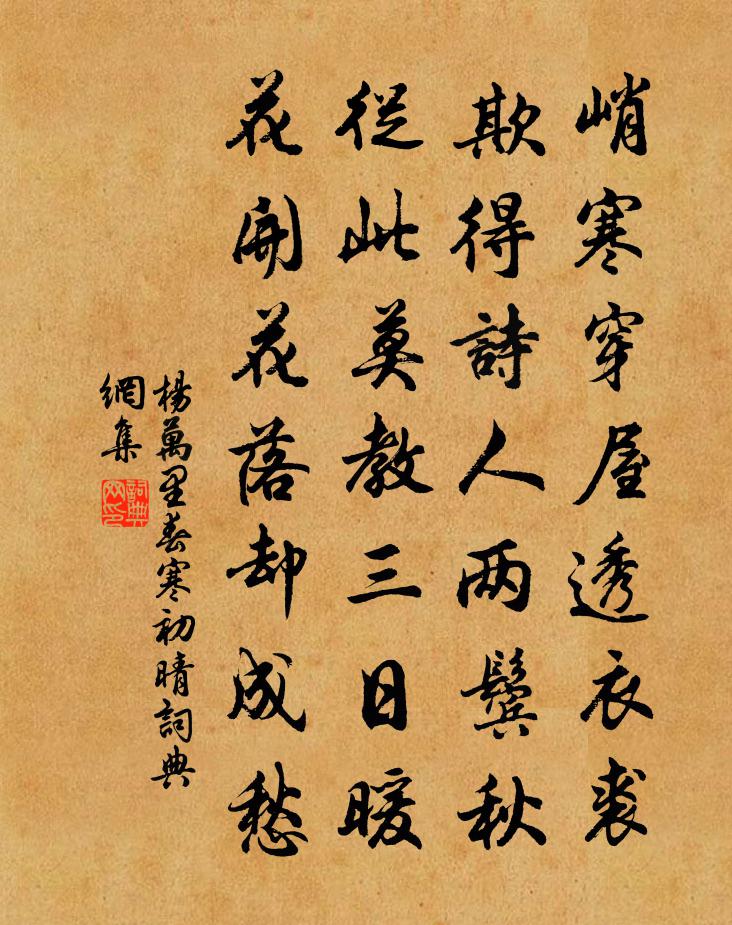 峭寒穿屋透衣裘
欺得詩人两鬓秋
從此莫教三日暖
花開花落却成愁
楊萬里春寒初晴詞典
網集
詞典
网印